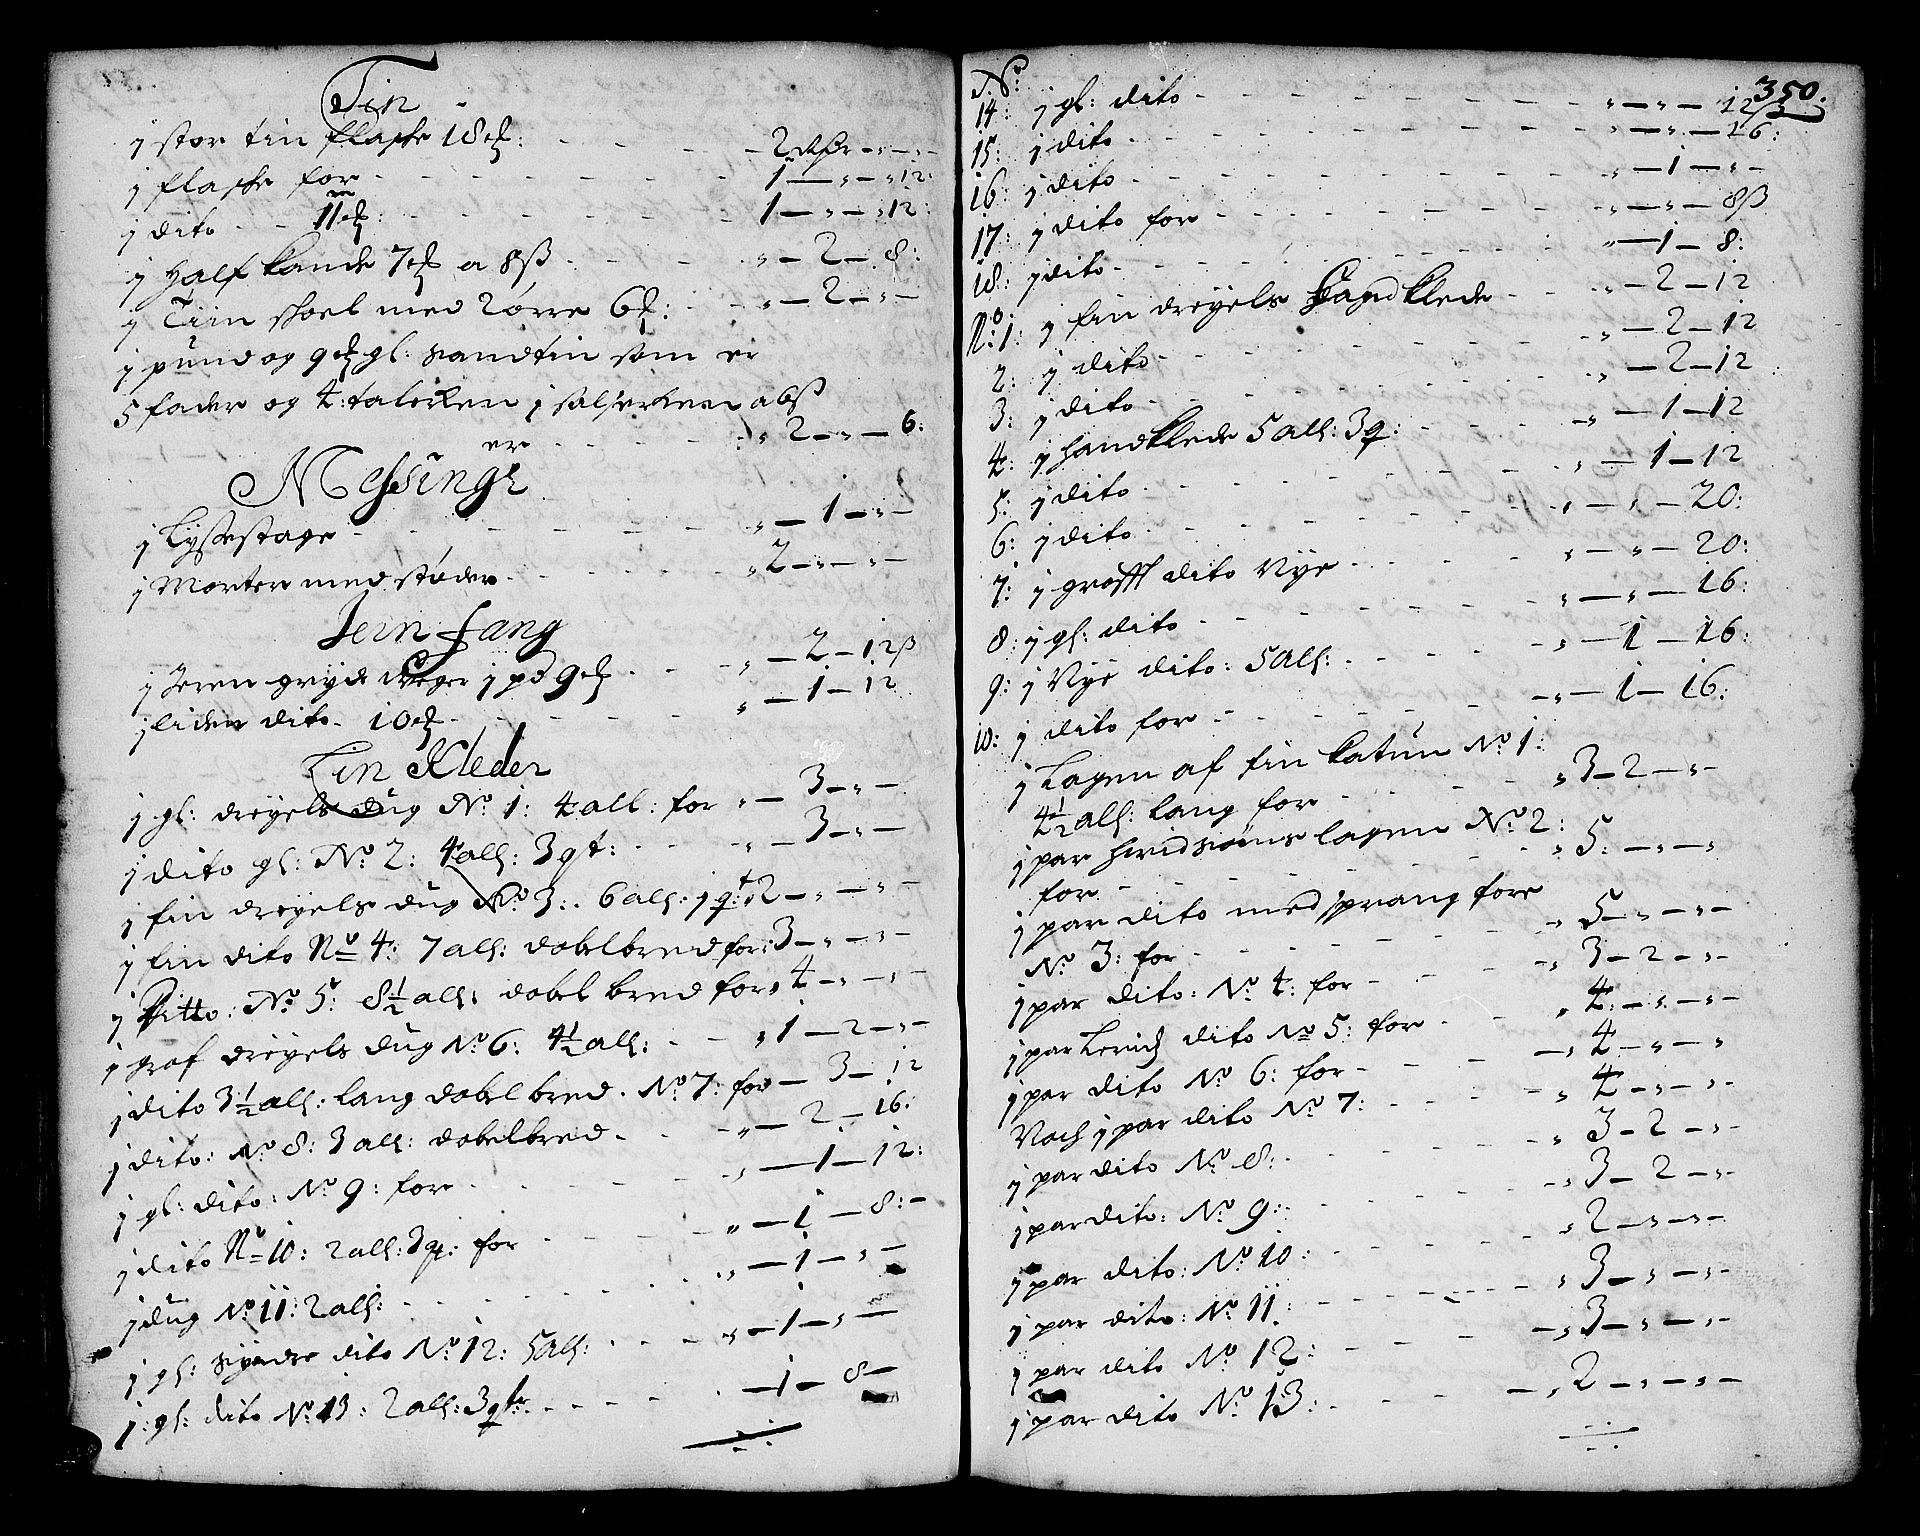 Tin
j stor tin flaske 18 : - - - 2 dlr - " - " -
j flaske for - - - 1 - " - " 12:
j dito - - 11 : - - - 1 - " - " 12:
j Half kande 7 a 8ß - - - " - 2 - 8:
j Tiin skael med 2 ørre 6 : - - " - 2 - " -
j pund og 9 gl: randtin som er
5 fader og 4: talerken j salserken a 6ß
er - - - " 2 - " - 6:
Messing
j Lysestage - - - " - 1 - " -
j Morter med støder - - - " 2 - " - " -
Jern fang
j Jeren gryde veger j pd 9 - - - " - 2 - 12ß
j liden dito - 10 - - - " - 1 - 12
Lin Kleder
j gl: dreyels dug No 1: 4 all: for " - 3 - " -
j dito gl: No 2: 4 all: 3 qt: - - " - 3 - " -
j fin dreyels dug No 3: 6 all: j qt " 2 - " - " -
j fin dito No 4: 7 all: dobelbred for: 3 - " - " -
j Ditto: No 5: 8½ all: dobel bred for " 4 - " - " -
j grof dreyels dug No 6: 4½ all: - - " 1 - 2 - " -
j dito 3½ all: lang dobel bred. No 7: for - 3 - 12
j dito: No 8: 3 all: dobelbred - - " - 2 - 16:
j gl: dito: No 9: for - - - " - 1 - 12:
j dito No 10: 2 all: 3 q: for - - " - 1 - 8: -
j dug No 11: 2 all: - - - " - 1 - " -
j gl: dito No 12: 5 all: - - - " - 1 - " -
j: gl: dito No 13: 2 all: 3 qtr: - - - - 1 - 8 -
350.
No
14: j gl: dito - - - " - " - 12ß
15: j dito - - - " - " - 16:
16: j dito - - - " - 1 - " -
17: j dito for - - - " - " - 8ß
18: j dito - - - " - 1 - 8:
No: 1: j fin dreyels Handklede - - " - 2 - 12
2: j dito - - - " - 2 - 12
3: j dito - - - " - 2 - 12
4: j handklede 5 all: 3 q: - - - " - 1 - 12
5: j dito - - - " - 1 - 12
6: j dito - - - " - " - 20:
7: j groff dito Nye - - - " - " - 20:
8: j gl: dito - - - " - " - 16:
9: j Nye dito: 5 all: - - - " - 1 - 16:
10: j dito for - - - " - 1 - 16:
j Lagen af fin katun No 1:
4½ all: lang for - - - " 3 - 2 - " -
j par hvidsøms lagen No 2:
for - - - " 5: - " - " -
j par dito med sprang fore
No 3: for - - - " 5 - " - " -
j par dito: No 4: for - - - " 3 - 2 - " -
j par Lerich dito No 5: for - - " 4: - " - " -
j par dito No 6: for - - - " 4 - " - "
Noch j par dito No 7: - - - " 4 - " - " -
j par dito No 8: - - - " 3 - 2 - " -
j par dito: No 9: - - - " 3 - 2 - " -
j par dito: No 10: - - - " 2 - " - " -
j par dito: No 11: - - - " 3 - " - " -
j par dito No 12: - - - " 3 - " - " -
j par dito No 13: - - - " 2 - " - " -